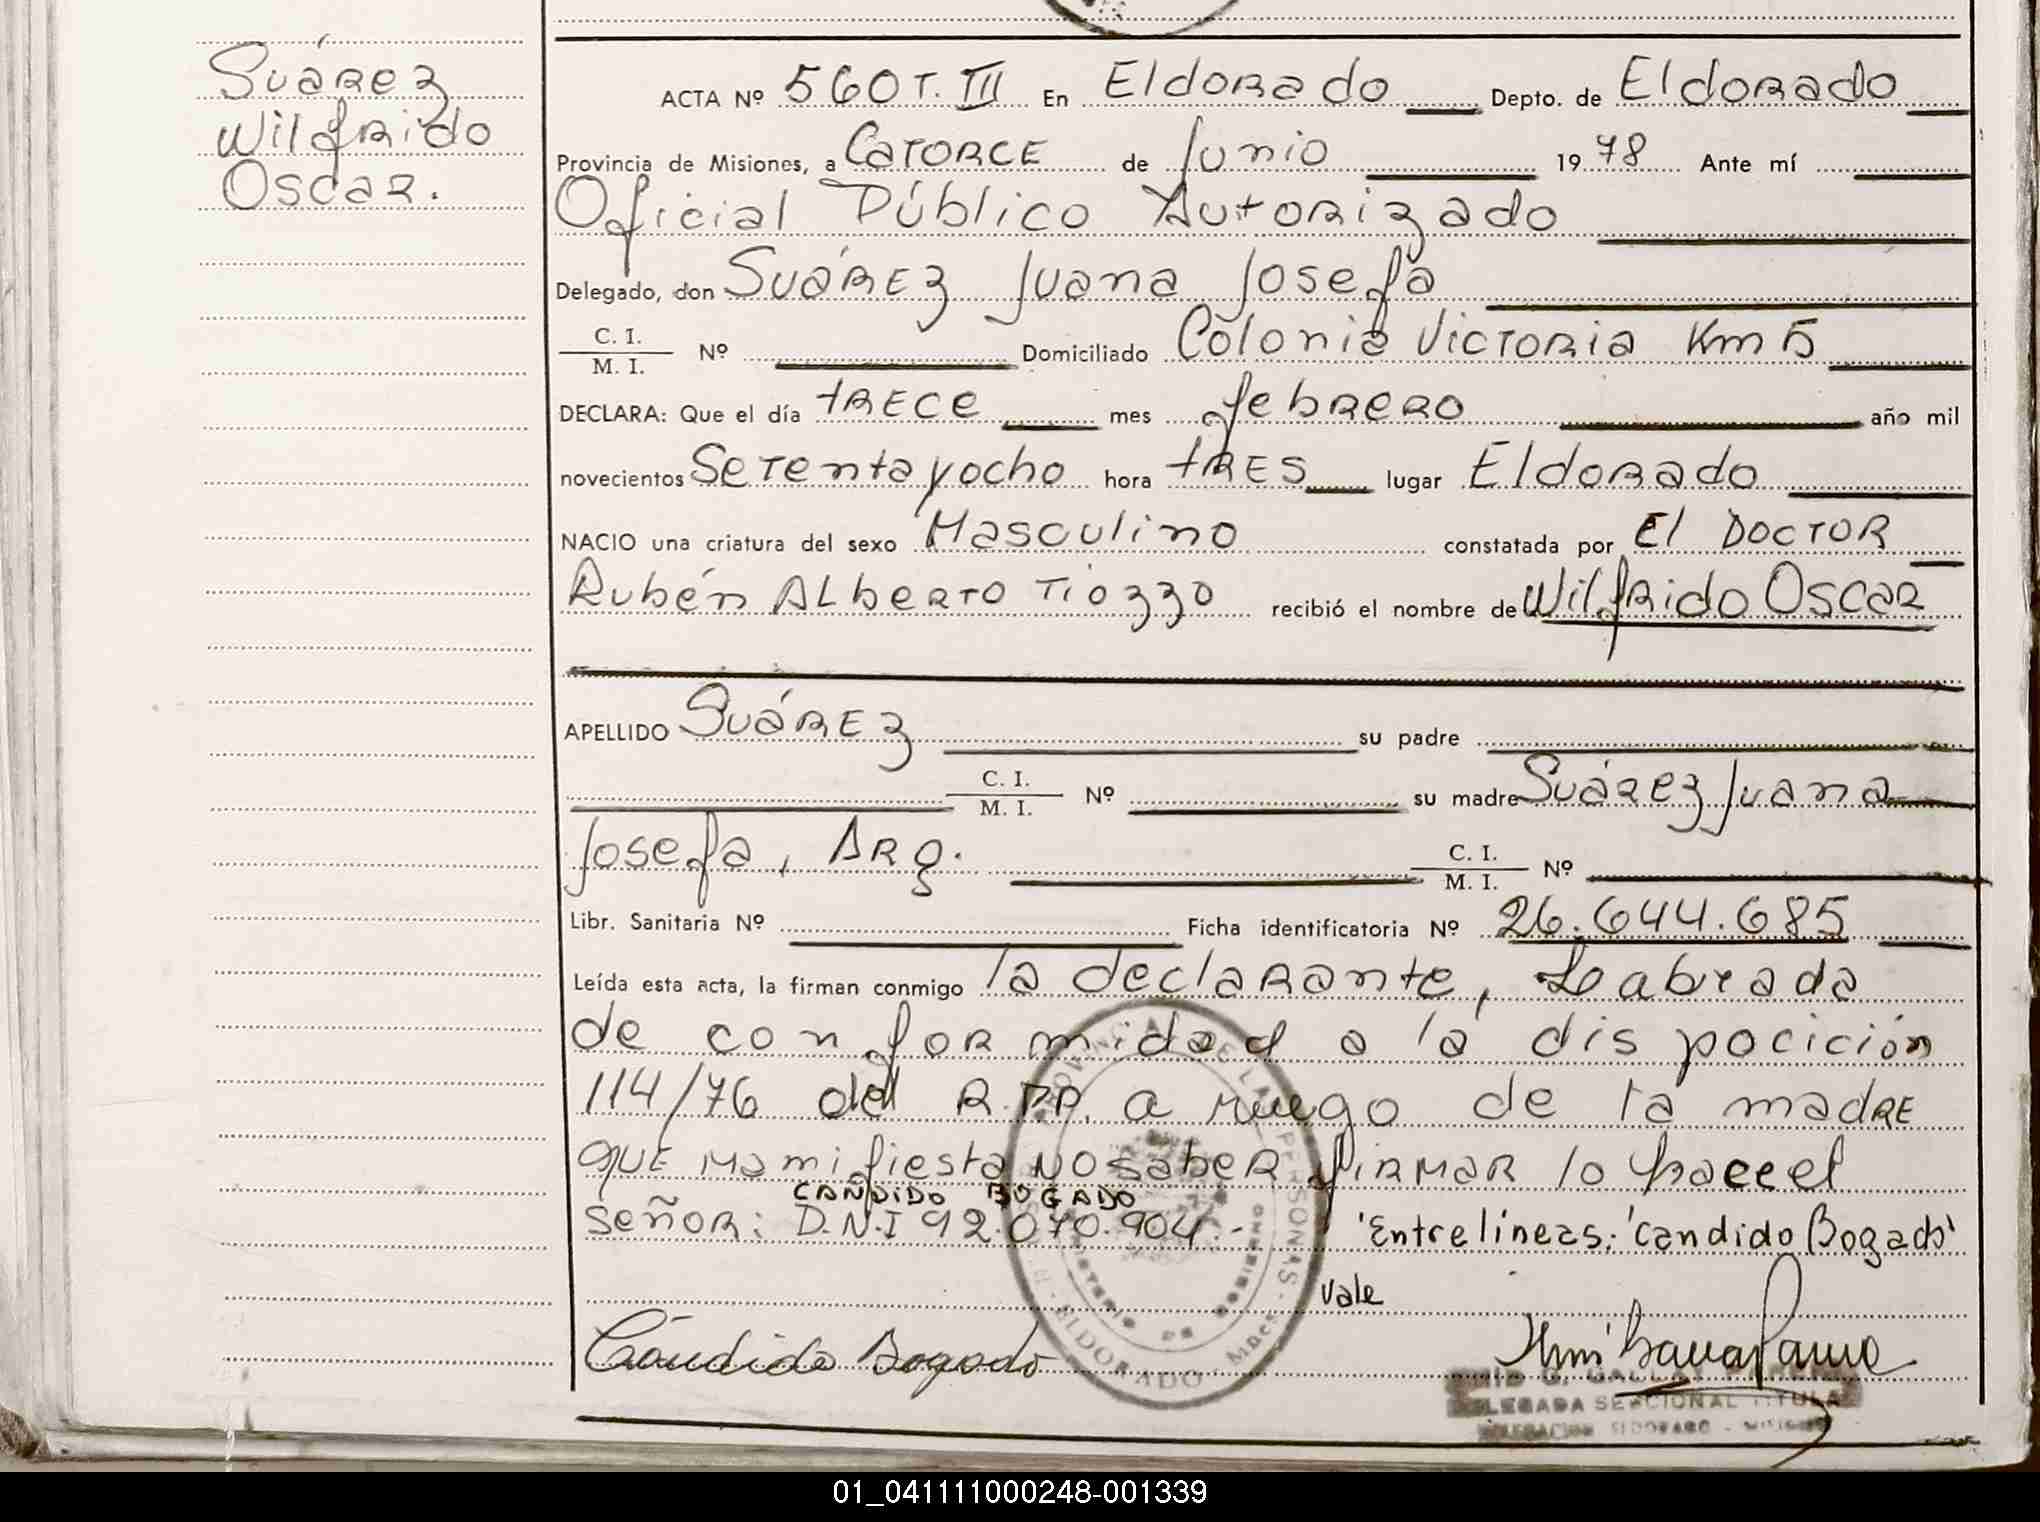 Suárez
Wilfrido
Oscar.
ACTA Nº 560 T. III En Eldorado Depto. de Eldorado
Provincia de Misiones, a Catorce de Junio 1978 Ante mí
Oficial Público Autorizado
Delegado, don Suárez Juana Josefa
C. I. / M. I. Nº Domiciliado Colonia Victoria Km 5
DECLARA: Que el día trece mes febrero año mil
novecientos Setenta y ocho hora tres lugar Eldorado
NACIO una criatura del sexo Masculino constatada por El Doctor
Rubén Alberto Tiozzo recibió el nombre de Wilfrido Oscar
APELLIDO Suárez su padre
C. I. / M. I. Nº su madre Suárez Juana
Josefa, Arg. C. I. / M. I. Nº
Libr. Sanitaria Nº Ficha identificatoria Nº 26.644.685
Leída esta acta, la firman conmigo la declarante, Labrada
de conformidad a la dispocición
114/76 del R.PP. a ruego de la madre
que manifiesta no saber firmar lo hace el
CANDIDO BOGADO
señor: D.N.I 92.070.904.- 'Entrelíneas: 'Candido Bogado'
vale
Cándido Bogado
PROVINCIAL DE LAS PERSONAS
MINISTERIO DE GOBIERNO
ELDORADO - Mnes.
DELEGADA SECCIONAL TITULAR
DELEGACION ELDORADO - MISIONES
01_041111000248-001339